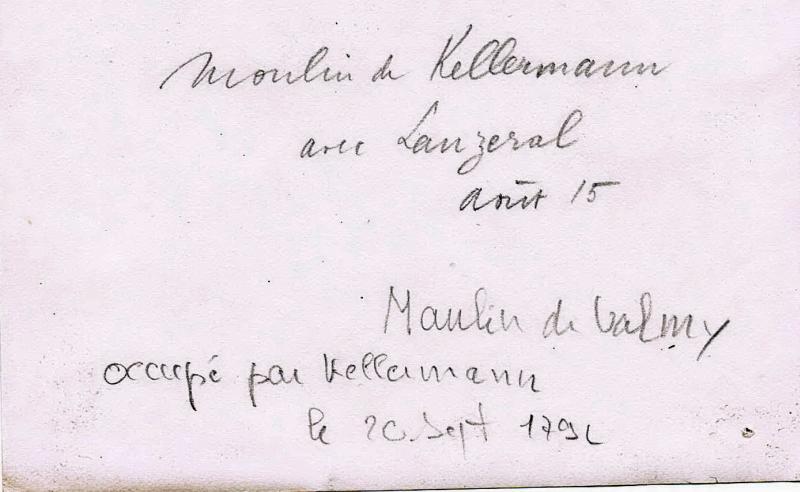 Moulin de Kellermann
avec Lanzeral
août 15
Moulin de Valmy
occupé par Kellermann
le 20 Sept 1792